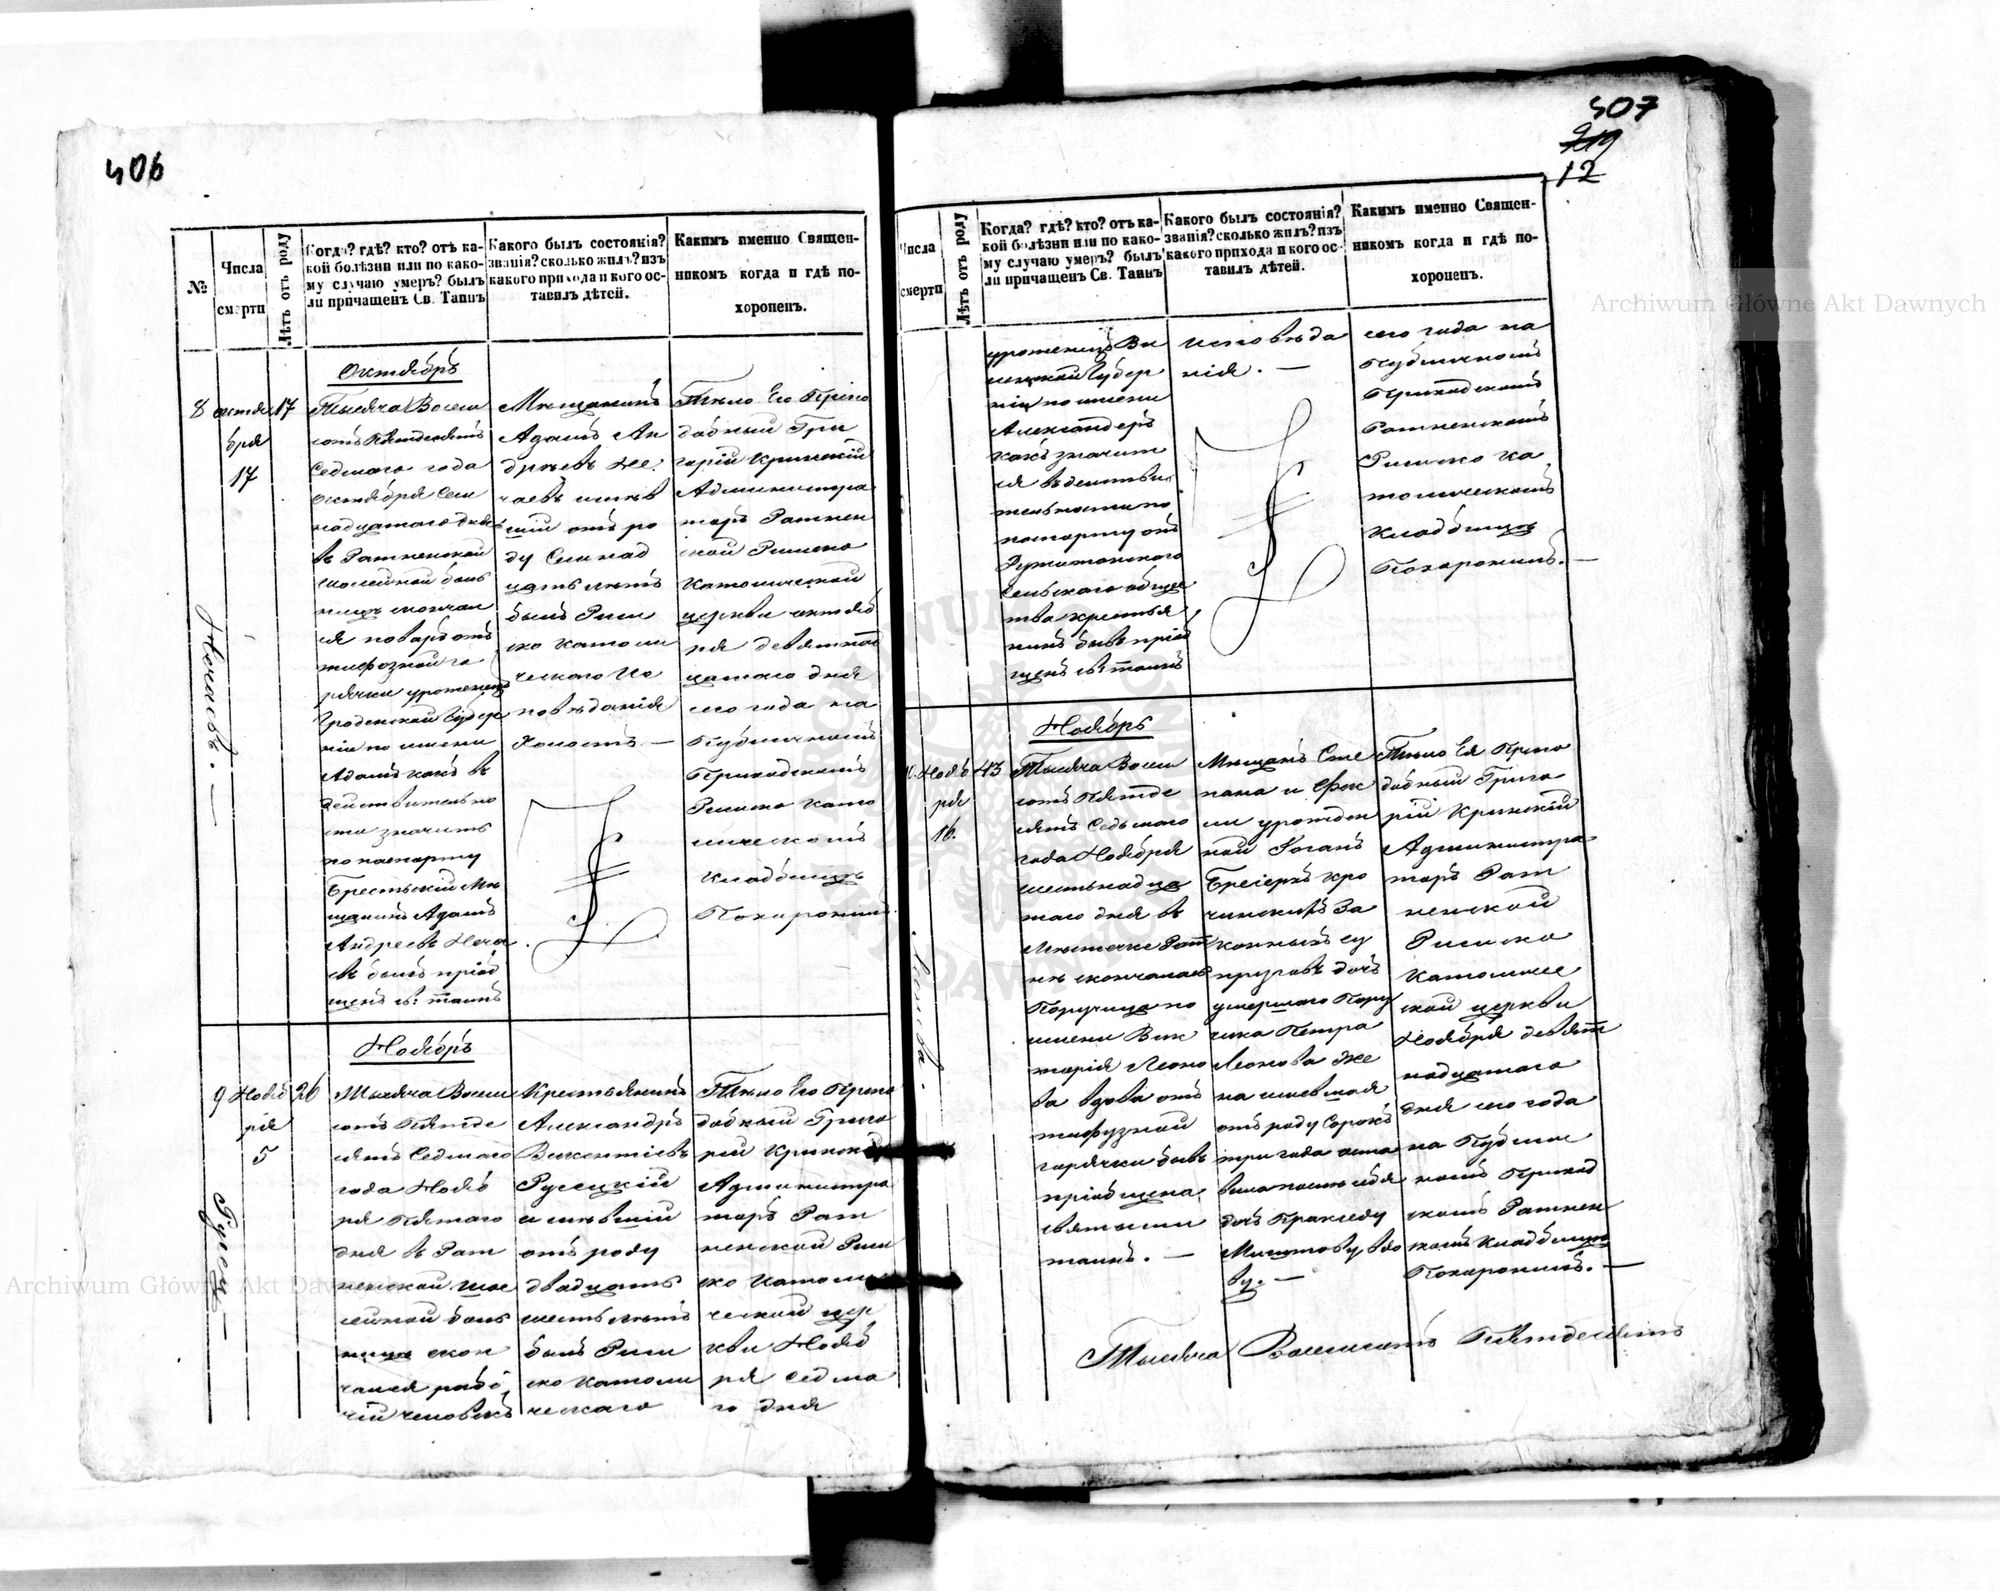 406
№
Числа смерти
Лѣтъ отъ роду
Когда? гдѣ? кто? отъ ка-
кой болѣзни или по како-
му случаю умеръ? былъ
ли причащенъ Св. Таинъ
Какого былъ состоянія?
званія? сколько жилъ? изъ
какого прихода и кого ос-
тавилъ дѣтей.
Какимъ именно Священ-
никомъ когда и гдѣ по-
хороненъ.
Октябрь
8
октя
бря
17
17
Тысяча Восем
сотъ Пятдесятъ
Седмаго года
октября Сем
надцатого дня
въ Ратненской
шосейной боль
ницѣ скончал
ся поваръ отъ
тифозной го
рячки уроженецъ
Гродненской Губер
ніи по имени
Адамъ какъ в
действительно
сти значитъ
по паспорту
Брестьскій Мѣ
щанинъ Адамъ
Андреевъ
былъ пріоб
щенъ св: таинъ
Мѣщанинъ
Адамъ Ан
дрѣевъ
имѣв
шій отъ ро
ду Семнад
цать лѣтъ
былъ Рим
ско католи
ческаго Ис
повѣданія
Холостъ. —
Тѣло Его Препо
добный Гри
горій Кринскій
Администра
торъ Ратнен
ской Римско
Католической
церкви октяб
ря девятнад
цатаго дня
сего года на
Публичномъ
Приходскомъ
Римско като
лическомъ
Кладбищѣ
Похоронилъ.
Ноябрь
9
Нояб
ря
5
26
Тысяча Восем
сотъ Пятде
сятъ Седмаго
года Нояб
ря Пятаго
дня въ Рат
ненской шос
сейной боль
ницѣ скон
чался рабо
чій человѣкъ
Крестьянинъ
Александръ
Викентіевъ
Русецкій
имѣвшій
отъ роду
двадцать
шесть лѣтъ
былъ Рим
ско католи
ческаго
Тѣло Его Препо
добный Григо
рій Кринскій
Администра
торъ Рат
ненской Рим
ско Католи
ческой цер
кви Нояб
ря седма
го дня
407
12
Числа смерти
Лѣтъ отъ роду
Когда? гдѣ? кто? отъ ка-
кой болѣзни или по како-
му случаю умеръ? былъ
ли причащенъ Св. Таинъ
Какого былъ состоянія?
званія? сколько жилъ? изъ
какого прихода и кого ос-
тавилъ дѣтей.
Какимъ именно Священ-
никомъ когда и гдѣ по-
хороненъ.
уроженецъ Ви
ленской Губер
ніи по имени
Александеръ
какъ значит
ся въ действи
тельности по
паспорту отъ
сельского общес
тва крестья
нинъ бывъ пріоб
щенъ св: таинъ
исповѣда
нія. —
сего года на
Публичномъ
Приходскомъ
Ратненскомъ
Римско ка
толическомъ
Кладбищѣ
Похоронилъ. —
Ноябрь
Нояб
ря
16.
43
Тысяча Восем
сотъ Пятде
сятъ Седьмаго
года Ноября
шестьнадца
таго дня въ
Мѣстечке Рат
нѣ скончалась
Поручица по
имени Вик
торія Леоно
ва вдова отъ
тифузной
горячки бывъ
пріобщена
святыми
таинъ. —
Мѣщанъ Сте
пана и
урожден
ной
законныхъ су
пруговъ дочь
умершаго Пору
чика Петра
Леонова Же
на имевшая
отъ роду Сорокъ
три года оста
вила после себя
дочь Пракседу
вдо
ву. —
Тѣло Ея Препо
добный Григо
рій Кринскій
Администра
торъ Рат
ненской
Римско
Католичес
кой церкви
Ноября девят
надцатаго
дня сего года
на Публич
номъ Приход
скомъ Ратнен
скомъ Кладбищѣ
Похоронилъ. —
Тысяча Восемсотъ Пятдесятъ
Archiwum Główne Akt Dawnych
Archiwum Główne Akt Dawnych